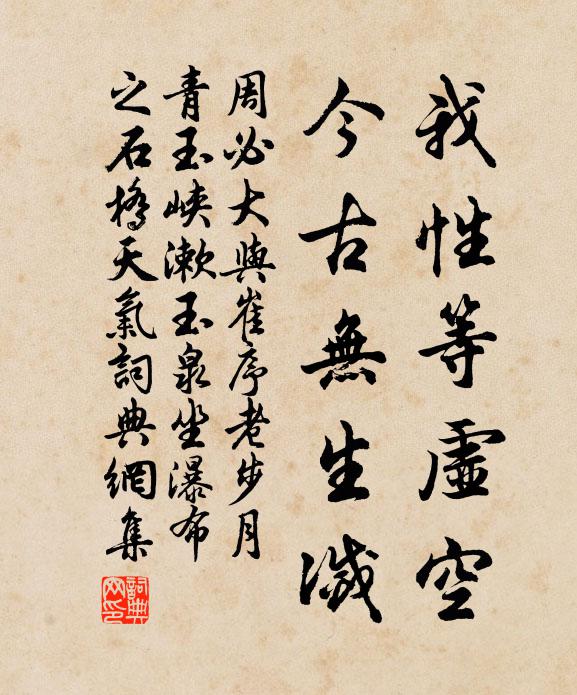 我性等虛空
今古無生滅
周必大與崔序老步月
青玉峽漱玉泉坐瀑布
之石橋天氣詞典網集
詞典
网印